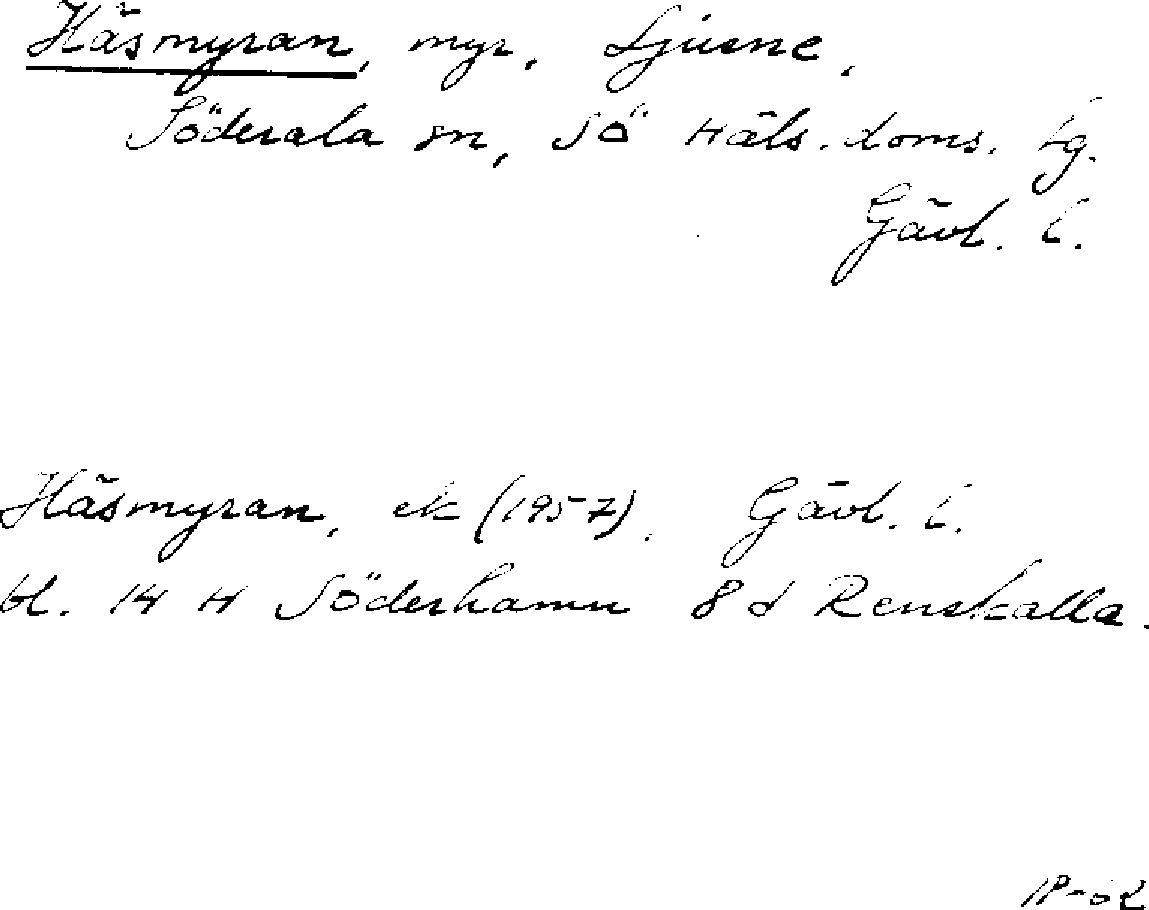 Häsmyran, myr, Ljusne,
Söderala sn, Sö Häls. doms. Lg.
Gävl. l.
Häsmyran, ek (1957). Gävl. l.
bl. 14 H Söderhamn 8 d Renskalla.